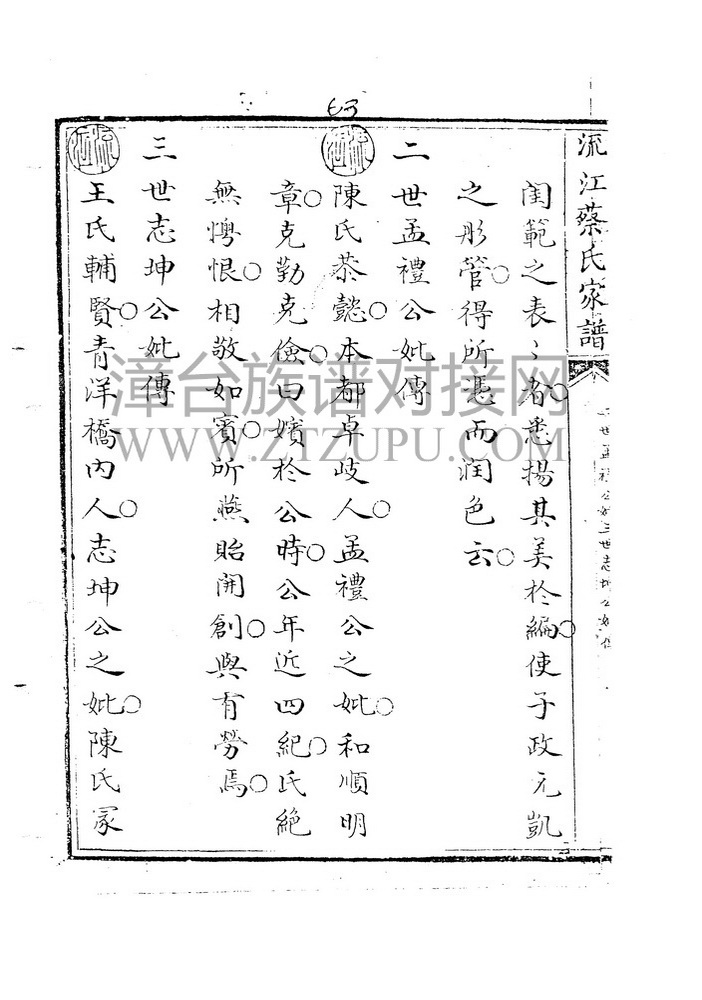 63
流江蔡氏家譜
二世孟禮公妣三世志坤公妣傳
閨範之表〻者○悉揚其美於編○使子政元凱
之彤管○得所憑而潤色云○
二世孟禮公妣傳
陳氏恭懿○本都卓岐人○孟禮公之妣○和順明
章○克勤克儉○曰嬪於公○時公年近四紀○氏絕
無愕恨○相敬如賓○所燕貽開創○與有勞焉○
三世志坤公妣傳
王氏輔賢○青洋橋內人○志坤公之妣○陳氏冢
漳台族谱对接网
WWW.ZTZUPU.COM